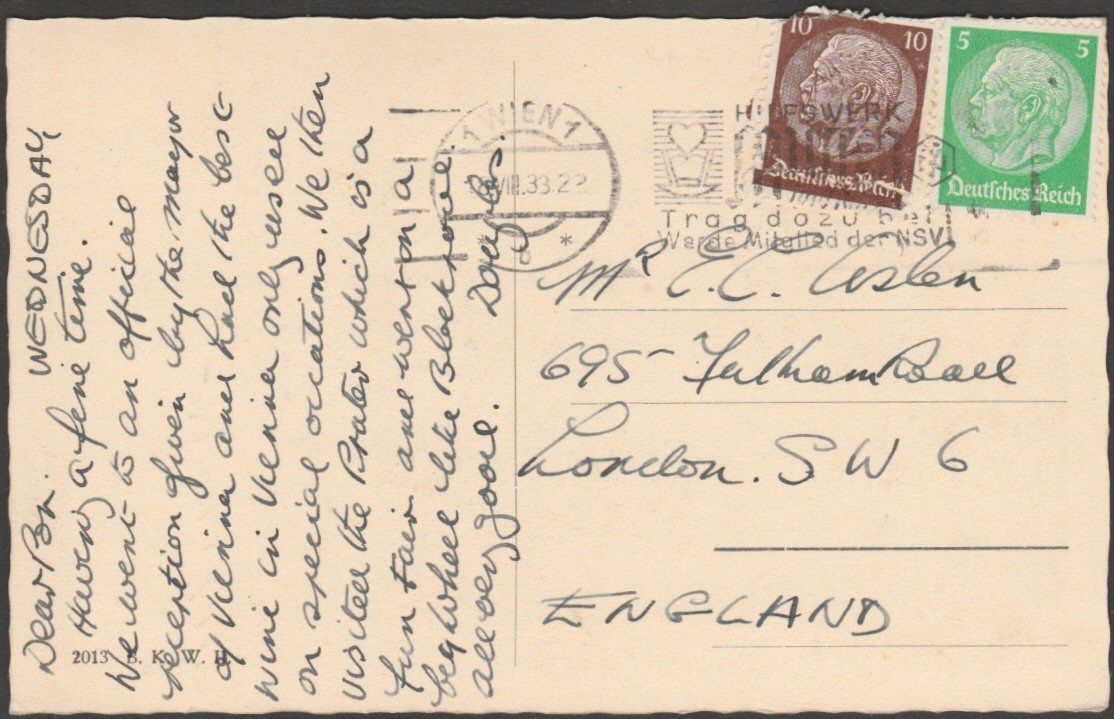 WEDNESDAY
Dear
Having a fine time.
We went to an official
reception given by the mayor
of Vienna and had the best
wine in Vienna only used
on special occations. We then
visited the Prater which is a
fun Fair and went on a
big wheel like Blackpool.
all very good. Douglas.
2013 B. K. W. I.
WIEN 1
VIII.38.22
HILFSWERK
Trag dazu bei
Werde Mitglied der NSV
10 10
Deutsches Reich
5 5
Deutsches Reich
Mr E. C.
695 Fulham Road
London. SW 6
ENGLAND